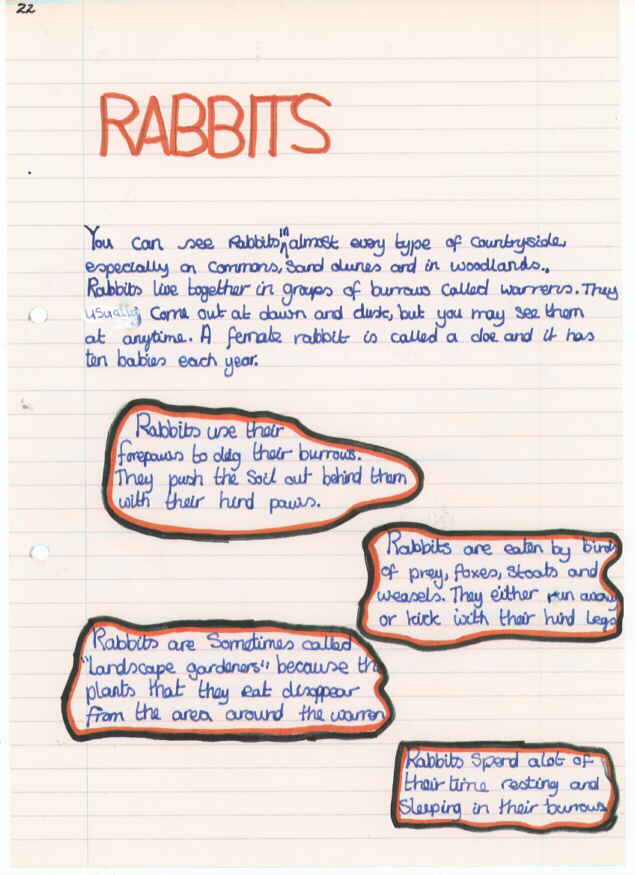 22
RABBITS
You can see Rabbits in almost every type of countryside,
especially on commons, sand dunes and in woodlands.
Rabbits live together in groups of burrows called warrens. They
usually come out at dawn and dusk, but you may see them
at anytime. A female rabbit is called a doe and it has
ten babies each year.
Rabbits use their
forepaws to dig their burrows.
They push the soil out behind them
with their hind paws.
Rabbits are eaten by birds
of prey, foxes, stoats and
weasels. They either run away
or kick with their hind legs
Rabbits are Sometimes called
"landscape gardeners" because the
plants that they eat disappear
from the area around the warren
Rabbits Spend alot of
their time resting and
Sleeping in their burrows